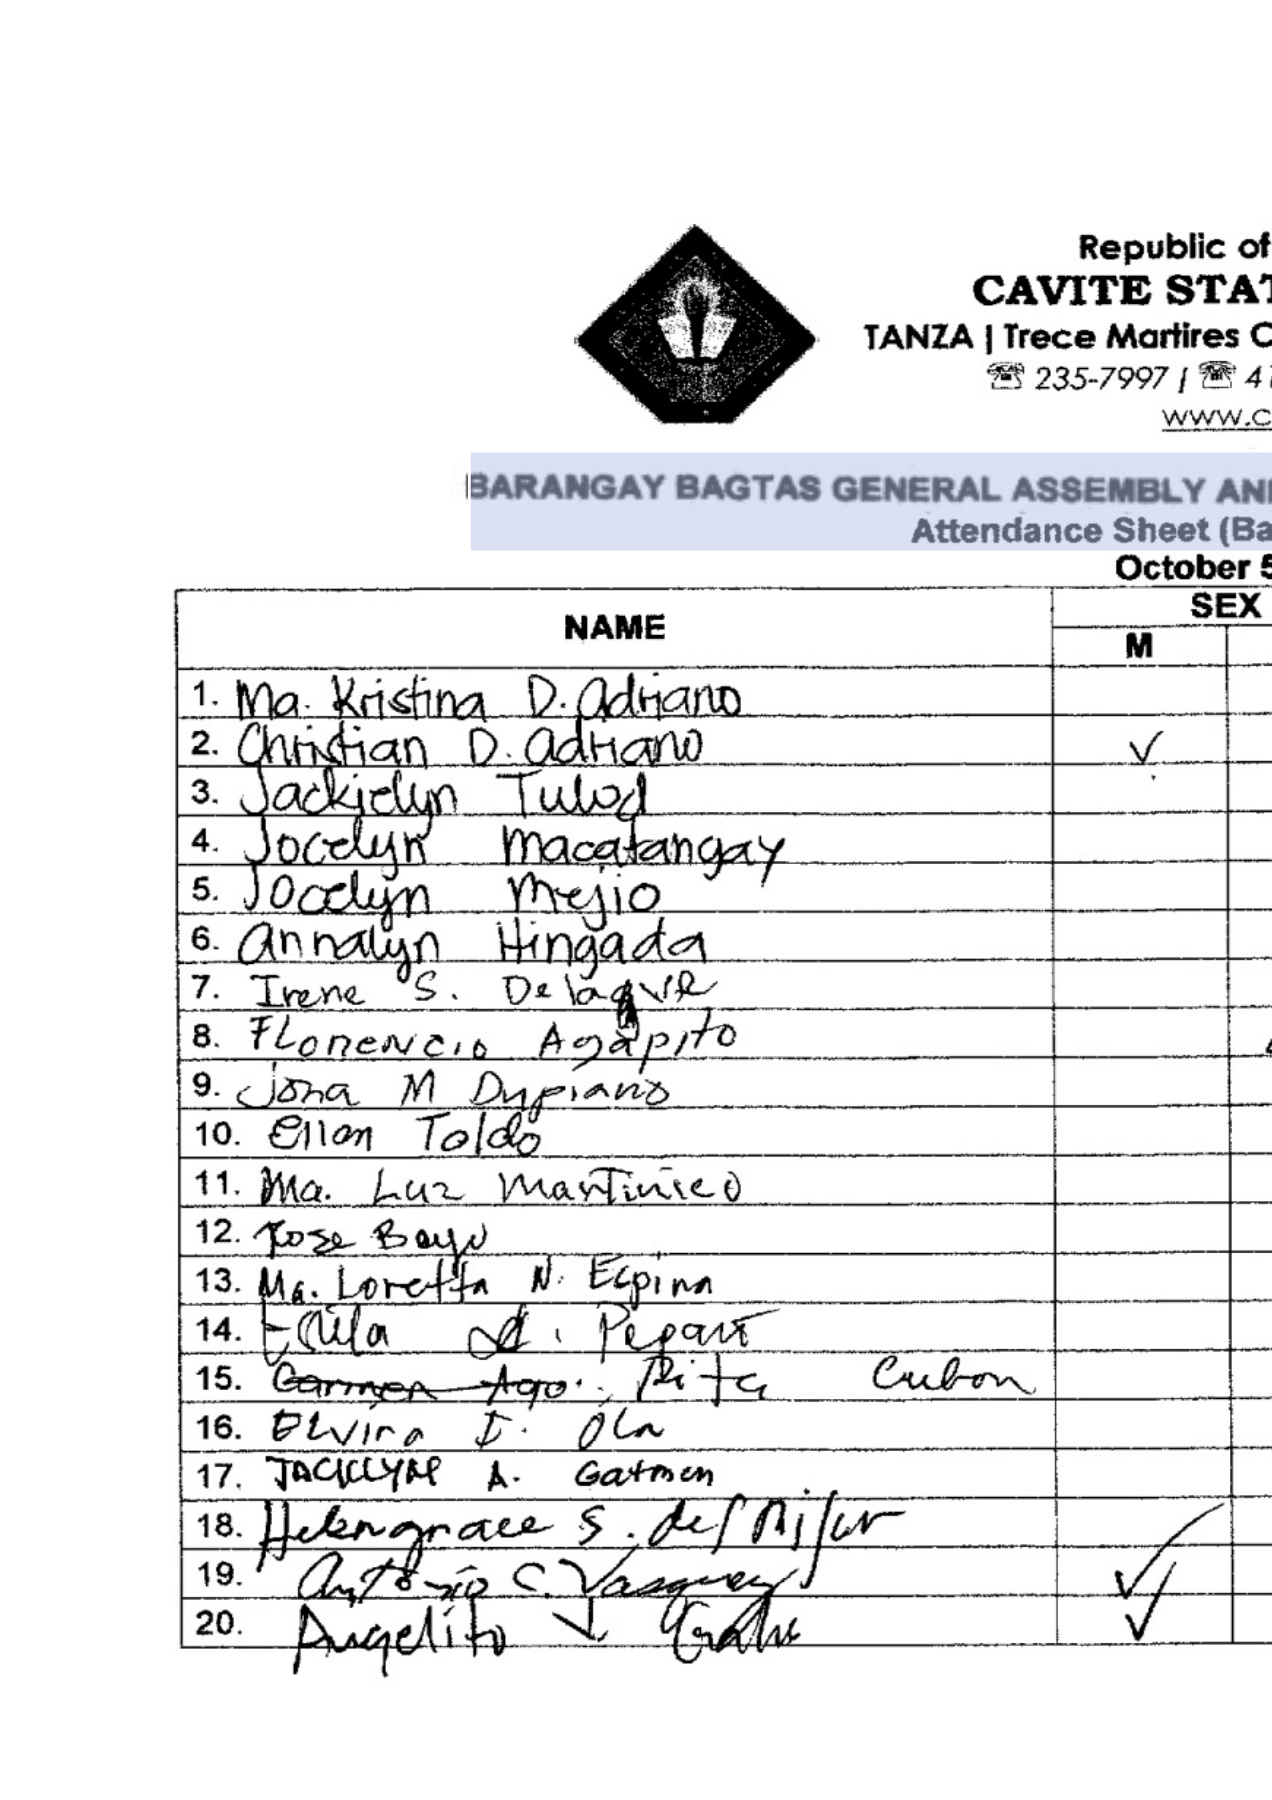 Republic of
CAVITE STAT
TANZA | Trece Martires C
☏ 235-7997 / ☏ 41
www.c
BARANGAY BAGTAS GENERAL ASSEMBLY AN
Attendance Sheet (Ba
October 5
NAME SEX
M
1. Ma. Kristina D. Adriano
2. Christian D. Adriano ✓
3. Jackielyn Tulod
4. Jocelyn Macatangay
5. Jocelyn Mejio
6. Annalyn Hingada
7. Irene S.
8. Florencio Agapito
9. Jona M
10. Ellen Toldo
11. Ma. Luz Martinico
12. Rose
13. Ma. Loretta N. Espina
14.
15. Carmen Ago Rita Cubon
16. Elvira I. Ola
17. A. Gatmen
18. Helengrace S. del
19. Antonio C. Vasquez ✓
20. Angelito ✓